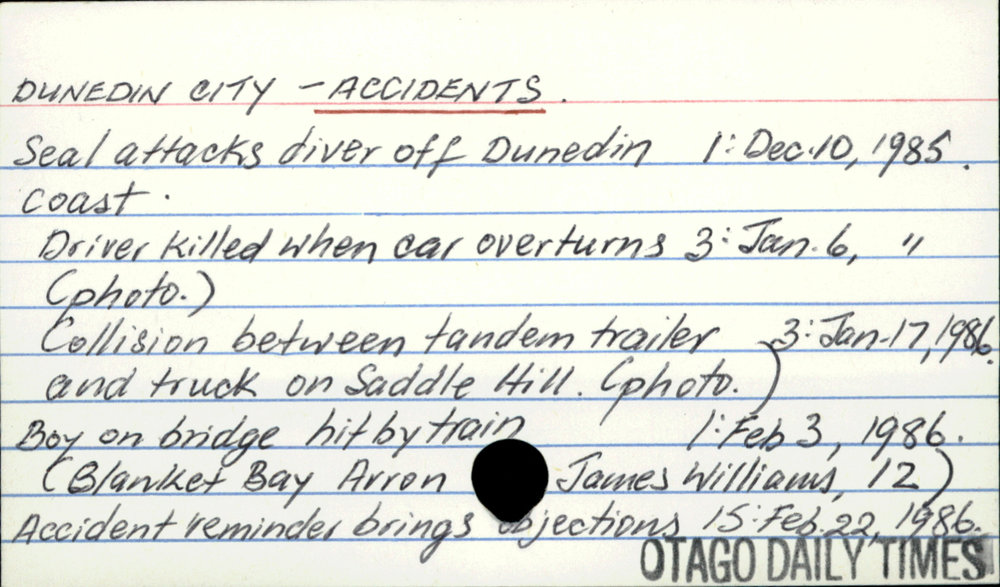 DUNEDIN CITY - ACCIDENTS.
Seal attacks diver off Dunedin 1: Dec. 10, 1985.
coast.
Driver killed when car overturns 3: Jan. 6, "
(photo.)
Collision between tandem trailer 3: Jan. 17, 1986.
and truck on Saddle Hill. (photo.)
Boy on bridge hit by train 1: Feb 3, 1986.
(Blanket Bay Arron James Williams, 12)
Accident reminder brings objections 15: Feb. 22, 1986.
OTAGO DAILY TIMES